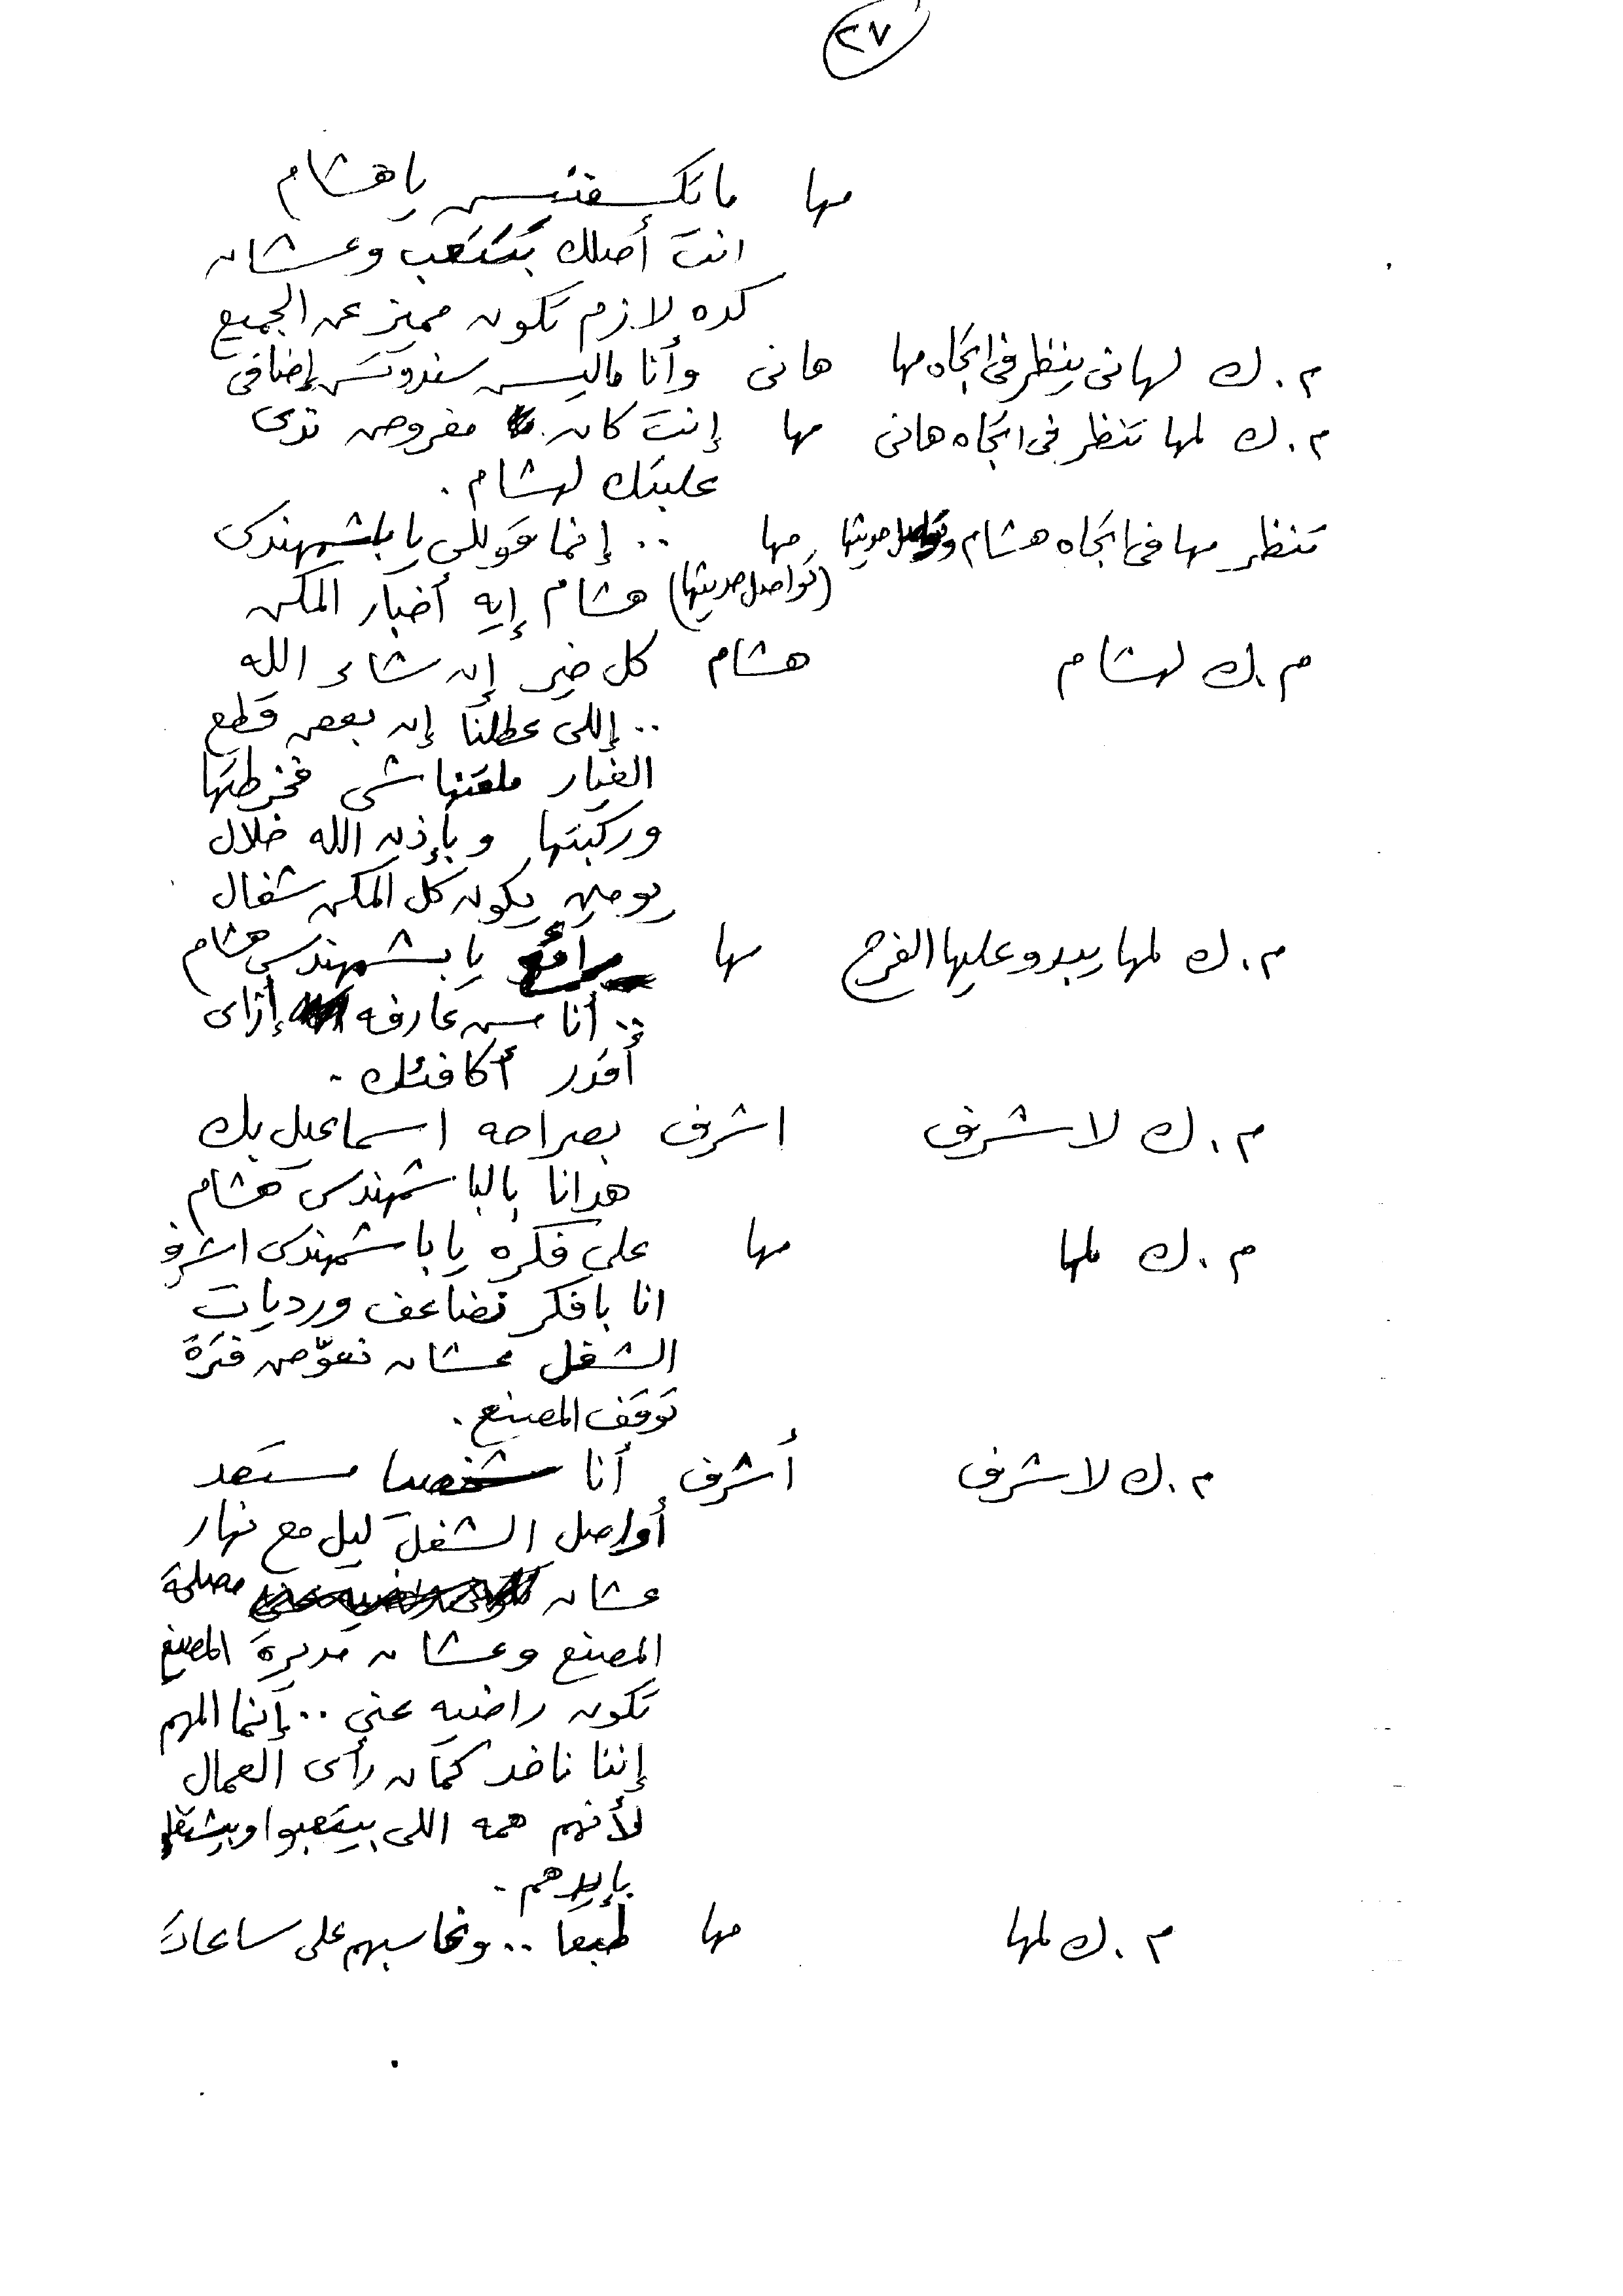 ٢٧
مها ماتكسفنيش يا هشام
انت أصلك بتتعب وعشان
كده لازم تكون مميز عن الجميع
م.ك لهانى ينظر فى اتجاه مها هانى وأنا ماليش سندوتش إضافى
م.ك لمها تنظر فى اتجاه هانى مها إنت كان مفروض تدى
علبتك لهشام.
تنظر مها فى اتجاه هشام وتواصل حديثها مها .. إنما قوللى يا باشمهندس
(تواصل حديثها) هشام إيه أخبار المكن
م.ك لهشام هشام كل خير إن شاء الله
.. إللى عطلنا إن بعض قطع
الغيار ملقتهاشى فخرطتها
وركبتها وبإذن الله خلال
يومين يكون كل المكن شغال
م.ك لمها يبدو عليها الفرح مها رائع يا بشمهندس هشام
.. أنا مش عارفه إزاى
أقدر أكافئك.
م.ك لاشرف اشرف بصراحه اسماعيل بك
هدانا بالباشمهندس هشام
م.ك لمها مها على فكره يا باشمهندس اشرف
انا بافكر نضاعف ورديات
الشغل عشان نعوّض فترة
توقف المصنع.
م.ك لاشرف أشرف أنا شخصيا مستعد
أواصل الشغل ليل مع نهار
عشان مصلحة
المصنع وعشان مديرة المصنع
تكون راضيه عنى .. إنما المهم
إننا ناخد كمان رأى العمال
لأنهم همه اللى بيتعبوا وبيشتغلوا
بإيدهم.
م.ك لمها مها طبعا .. ونحاسبهم على ساعات